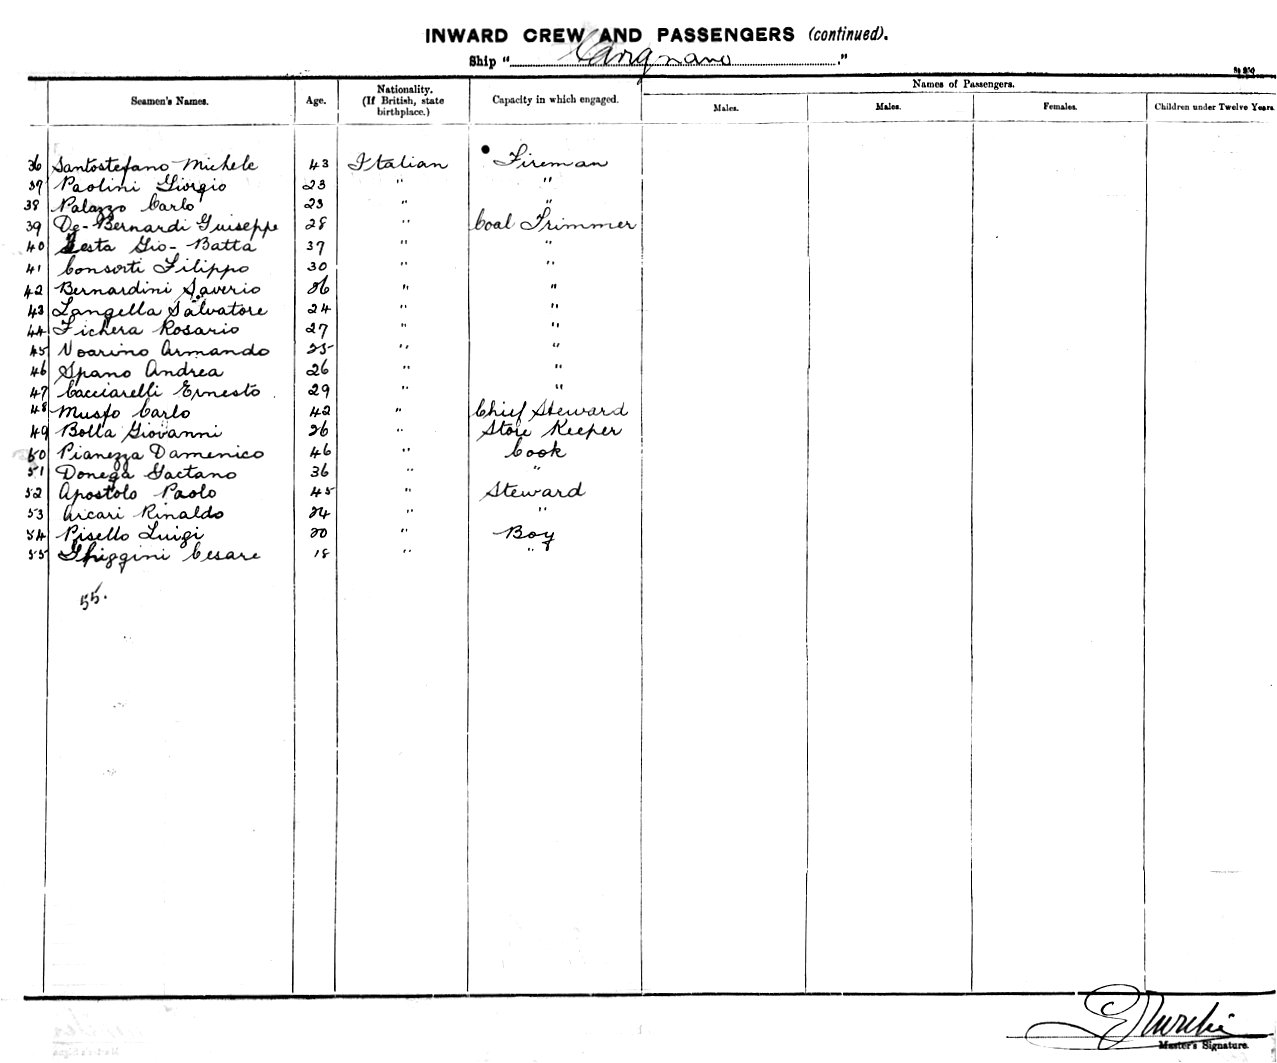 INWARD CREW AND PASSENGERS (continued).
Ship "Carignano."
Seamen's Names. Age. Nationality. (If British, state birthplace.) Capacity in which engaged. Names of Passengers.
Males. Males. Females. Children under Twelve Years.
36 Santostefano Michele 43 Italian Fireman
37 Paolini Giorgio 23 " "
38 Palazzo Carlo 23 " "
39 De-Bernardi Guiseppe 28 " Coal Trimmer
40 Testa Gio-Batta 37 " "
41 Consorti Filippo 30 " "
42 Bernardini Saverio 36 " "
43 Langella Salvatore 24 " "
44 Fichera Rosario 27 " "
45 Voarino Armando 25 " "
46 Spano Andrea 26 " "
47 Cacciarelli Ernesto 29 " "
48 Musfo Carlo 42 " Chief Steward
49 Bolla Giovanni 26 " Store Keeper
50 Pianezza Damenico 46 " Cook
51 Donega Gaetano 36 " "
52 Apostolo Paolo 45 " Steward
53 Arcari Rinaldo 24 " "
54 Pisello Luigi 20 " Boy
55 Ghiggini Cesare 18 " "
55.
Master's Signature.